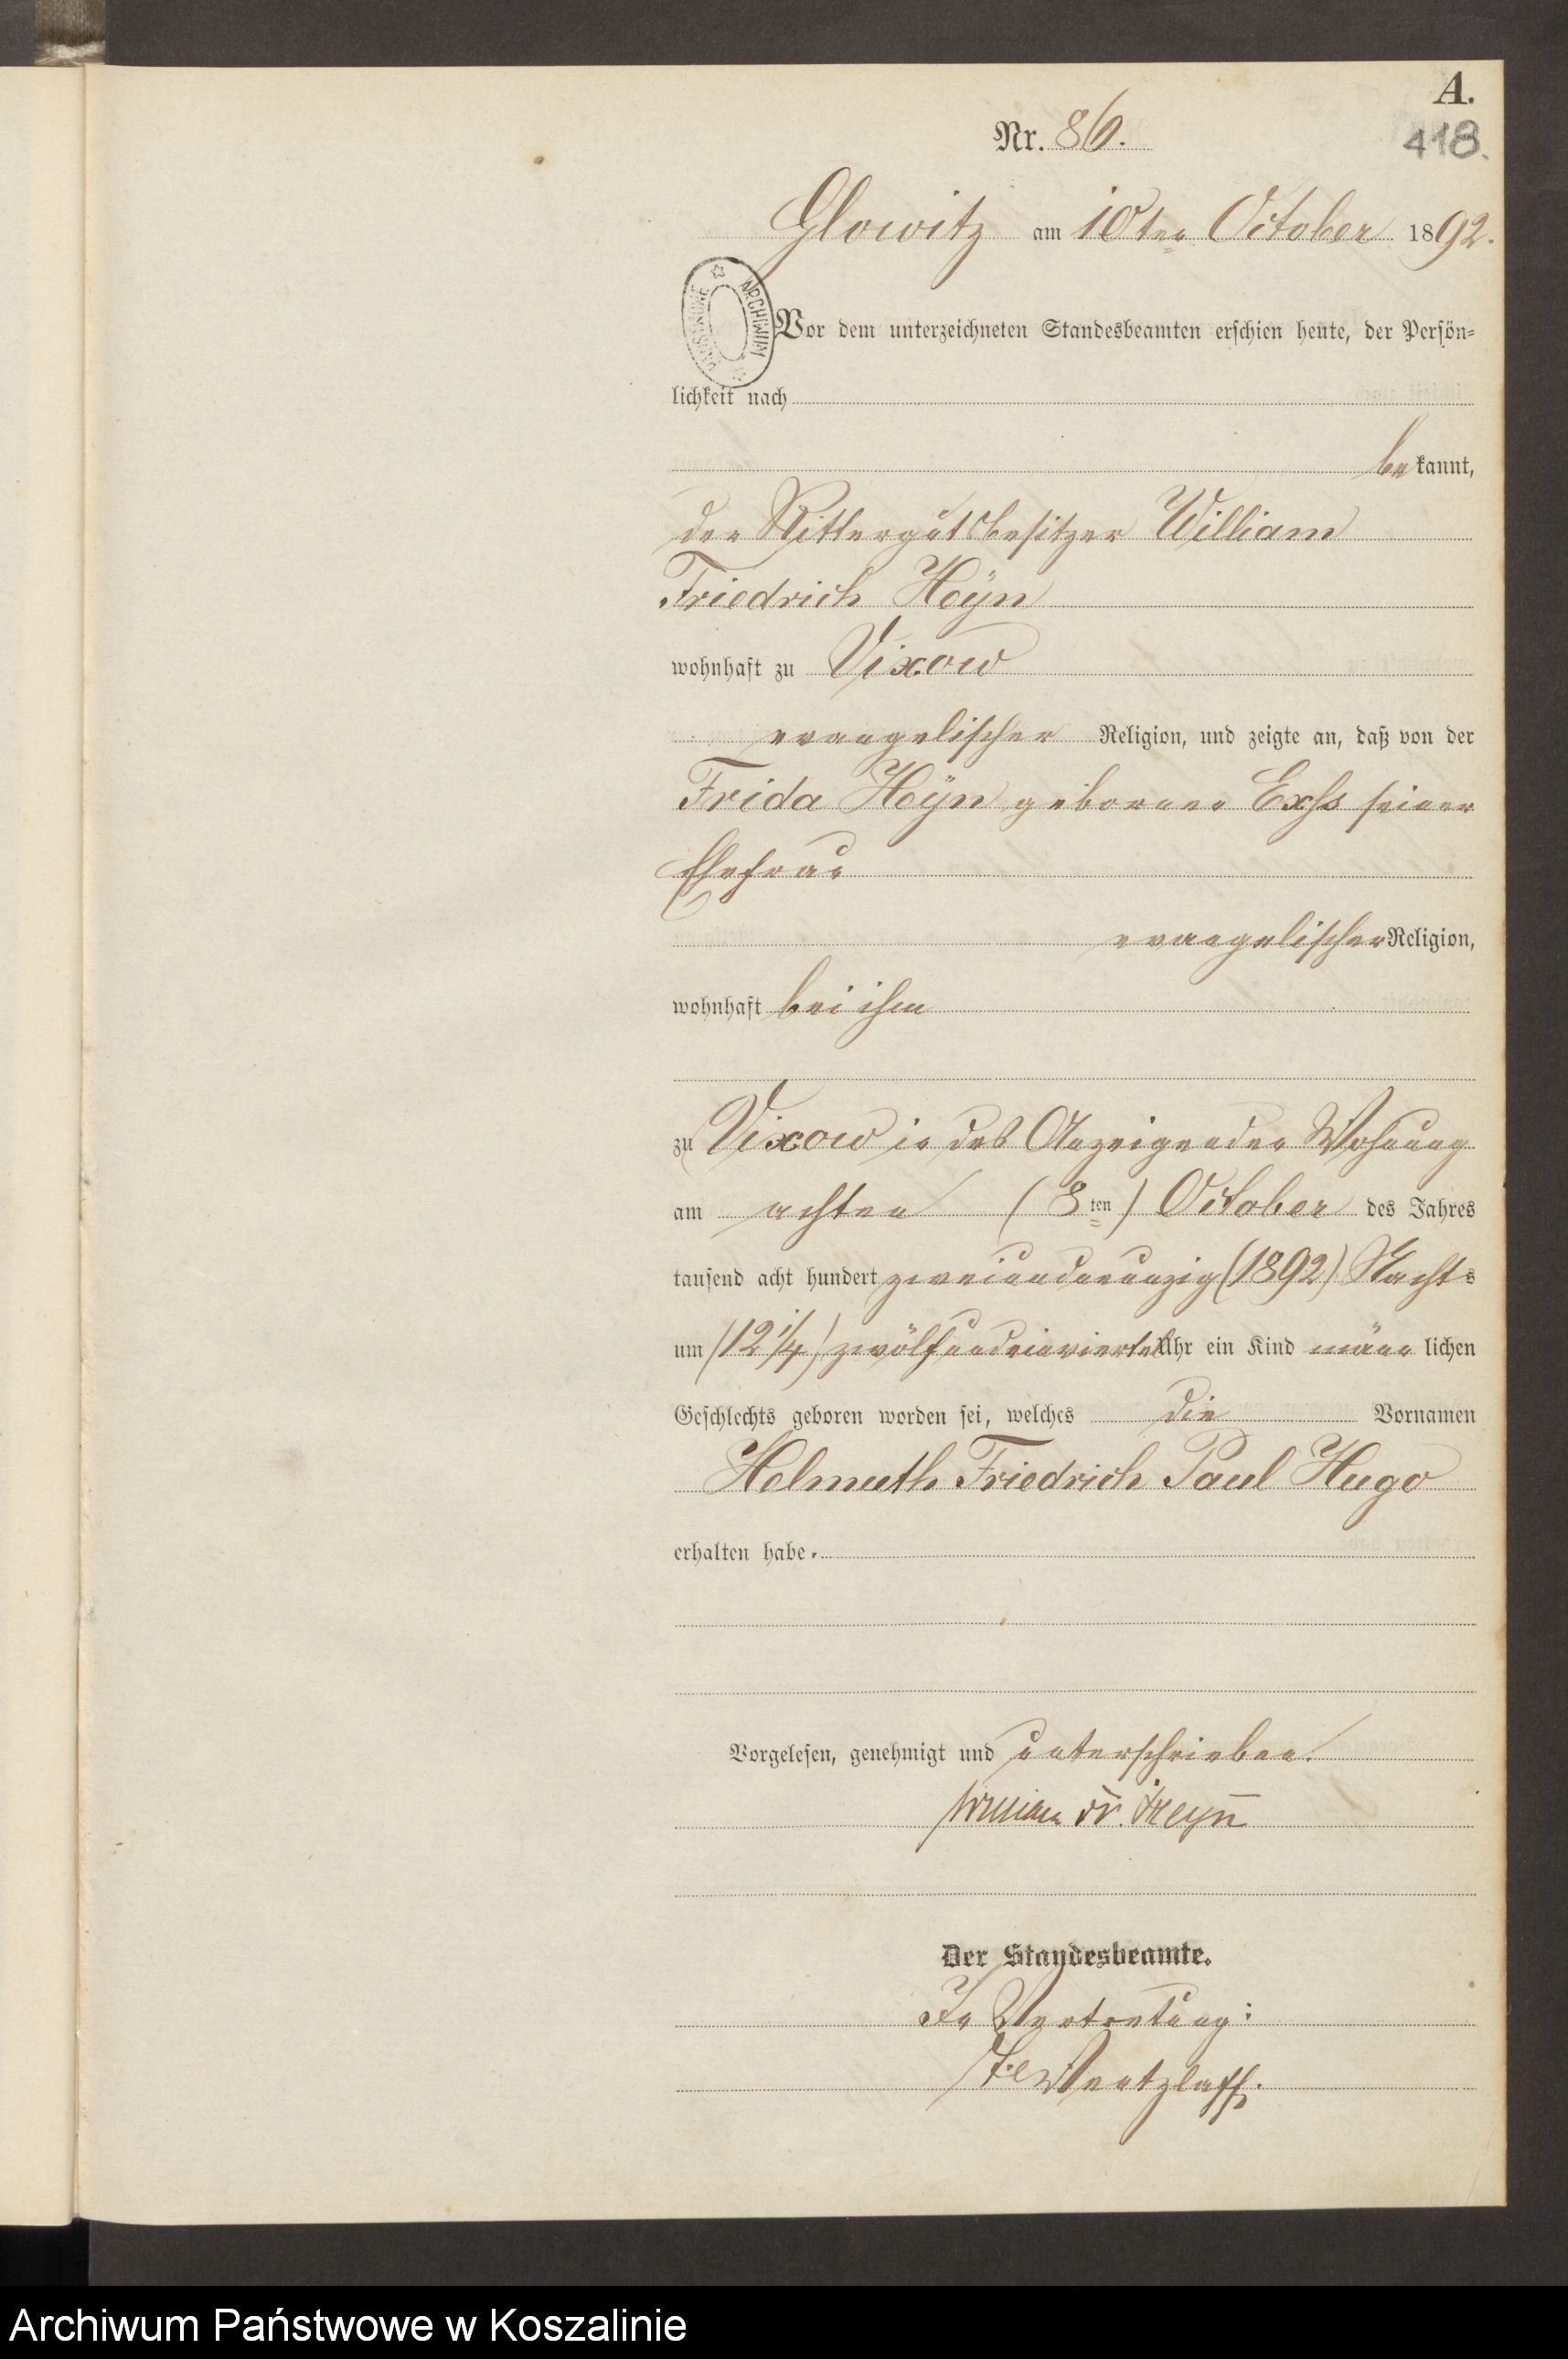 A.
Nr. 86.
418.
Glowitz am 10ten October 1892.
ARCHIWUM
Vor dem unterzeichneten Standesbeamten erschien heute, der Persön-
lichkeit nach
bekannt,
der Rittergutsbesitzer William
Friedrich Heÿn
wohnhaft zu Vixow
evangelischer Religion, und zeigte an, daß von der
Frida Heÿn geborene seiner
Ehefrau
evangelischer Religion,
wohnhaft bei ihm
zu Vixow in des Anzeigenden Wohnung
am achten (8ten) October des Jahres
tausend acht hundert zweiundneunzig (1892) Nachts
um (12 1/4) zwölfundeinviertel Uhr ein Kind männlichen
Geschlechts geboren worden sei, welches die Vornamen
Helmuth Friedrich Paul Hugo
erhalten habe.
Vorgelesen, genehmigt und unterschrieben.
William Fr. Heyn
Der Standesbeamte.
In Vertretung:
Archiwum Państwowe w Koszalinie